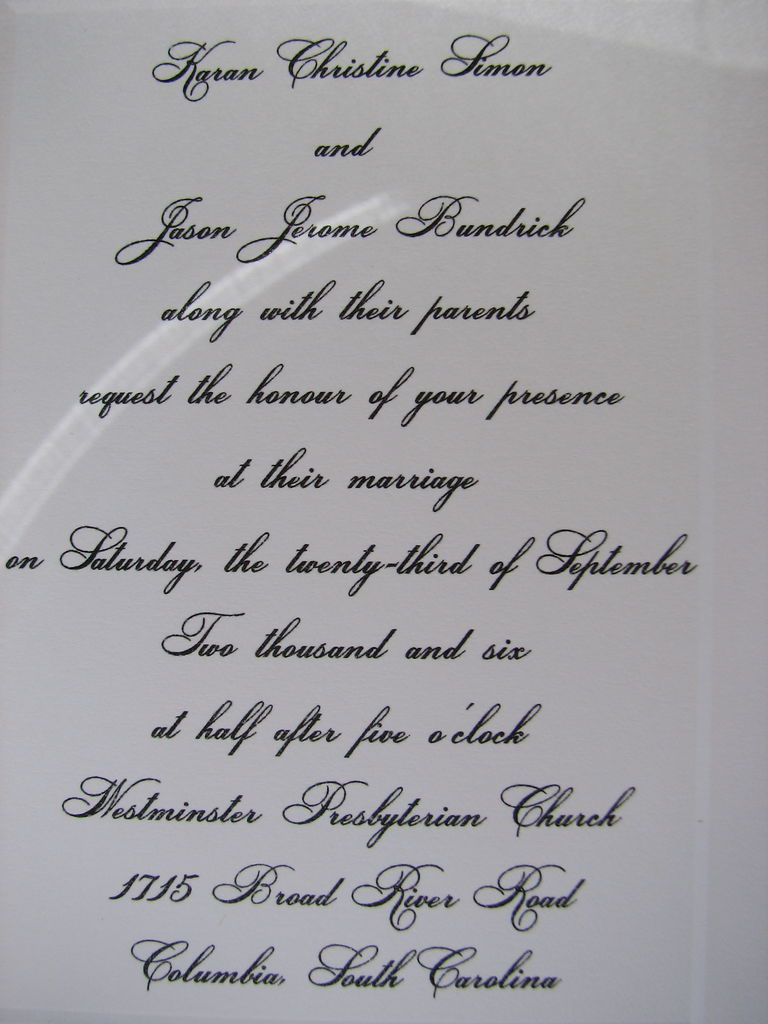 Karan Christine Simon
and
Jason Jerome Bundrick
along with their parents
request the honour of your presence
at their marriage
on Saturday, the twenty-third of September
Two thousand and six
at half after five o'clock
Westminster Presbyterian Church
1715 Broad River Road
Columbia, South Carolina